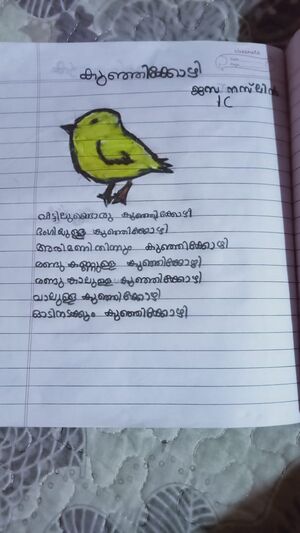 classmate
Date
Page
കുഞ്ഞിക്കോഴി
ജസ നസ്ലിൻ
1C
വീട്ടിലുണ്ടൊരു കുഞ്ഞിക്കോഴി
ഭംഗിയുള്ള കുഞ്ഞിക്കോഴി
അരിമണി തിന്നും കുഞ്ഞിക്കോഴി
രണ്ടു കണ്ണുള്ള കുഞ്ഞിക്കോഴി
രണ്ടു കാലുള്ള കുഞ്ഞിക്കോഴി
വാലുള്ള കുഞ്ഞിക്കോഴി
ഓടിനടക്കും കുഞ്ഞിക്കോഴി